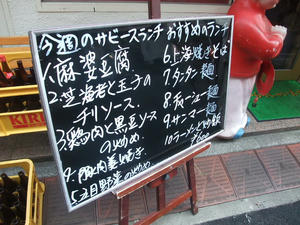 今週のサビースランチ
1.麻婆豆腐
2.芝海老と玉子の
チリソース
3.鶏肉と黒豆ソース
の炒め
4.豚肉
5.五目野菜の炒め
おすすめのランチ
6.上海焼きそば
7.タンタン麺
8.チャーシュー麺
9.サンマー麺
10.ラーメンと炒飯
¥600
KIRIN